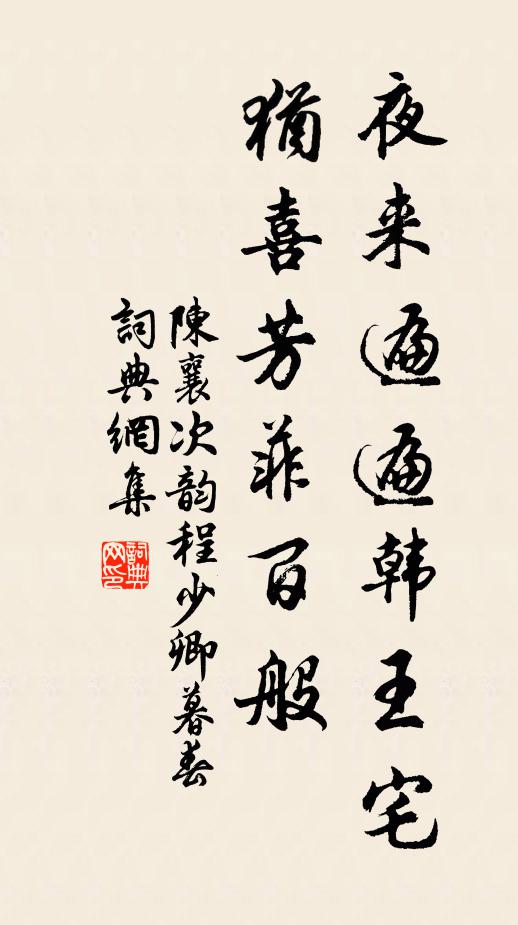 夜来遍遍韩王宅
猶喜芳菲百般
陳襄次韵程少卿暮春
詞典網集
詞典网印